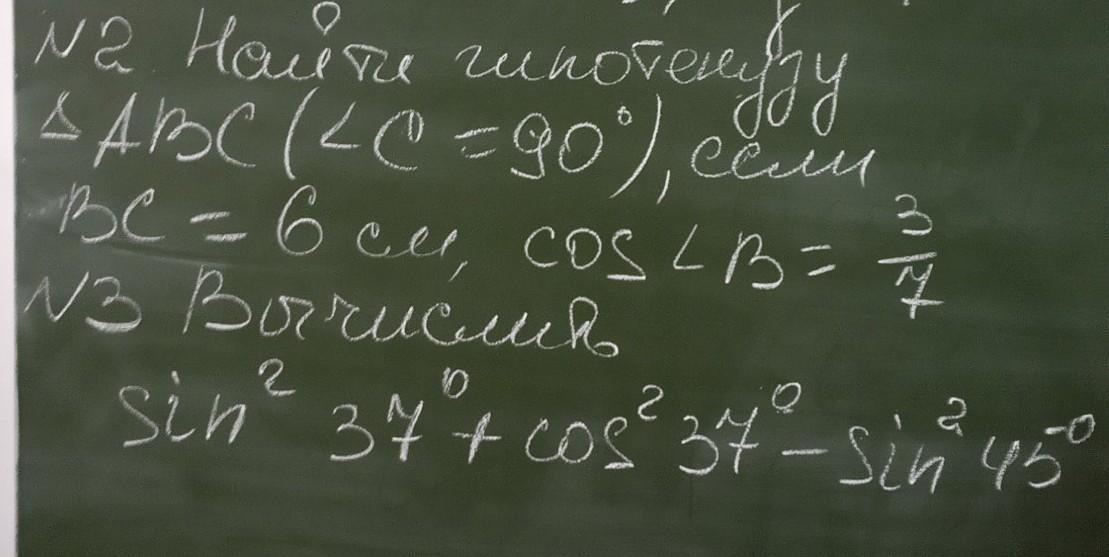 N2 Найти гипотенузу
△ABC (∠C = 90°), если
BC = 6 см, cos ∠B = 3/7
N3 Вычислить
sin² 37° + cos² 37° - sin² 45°